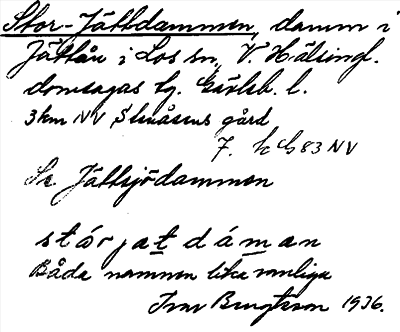 Stor-Jättdammen, damm i
Jättån i Los sn, V. Hälsingl.
domsagas tg. Gävleb. l.
3 km NV Skråsens gård
7. k G 83 NV
Se. Jättsjödammen
stórjat dáman
Båda namnen lika vanliga
Ivar Bengtsson 1936.